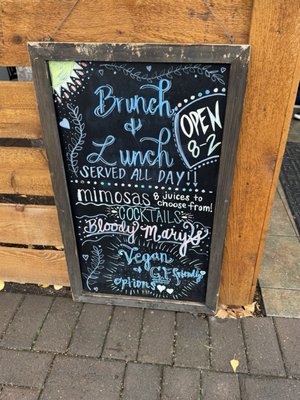 Brunch
&
Lunch
OPEN
8-2
SERVED ALL DAY!!
mimosas 8 juices to
choose from!
COCKTAILS
Bloody Mary's
Vegan
& GF friendly
options